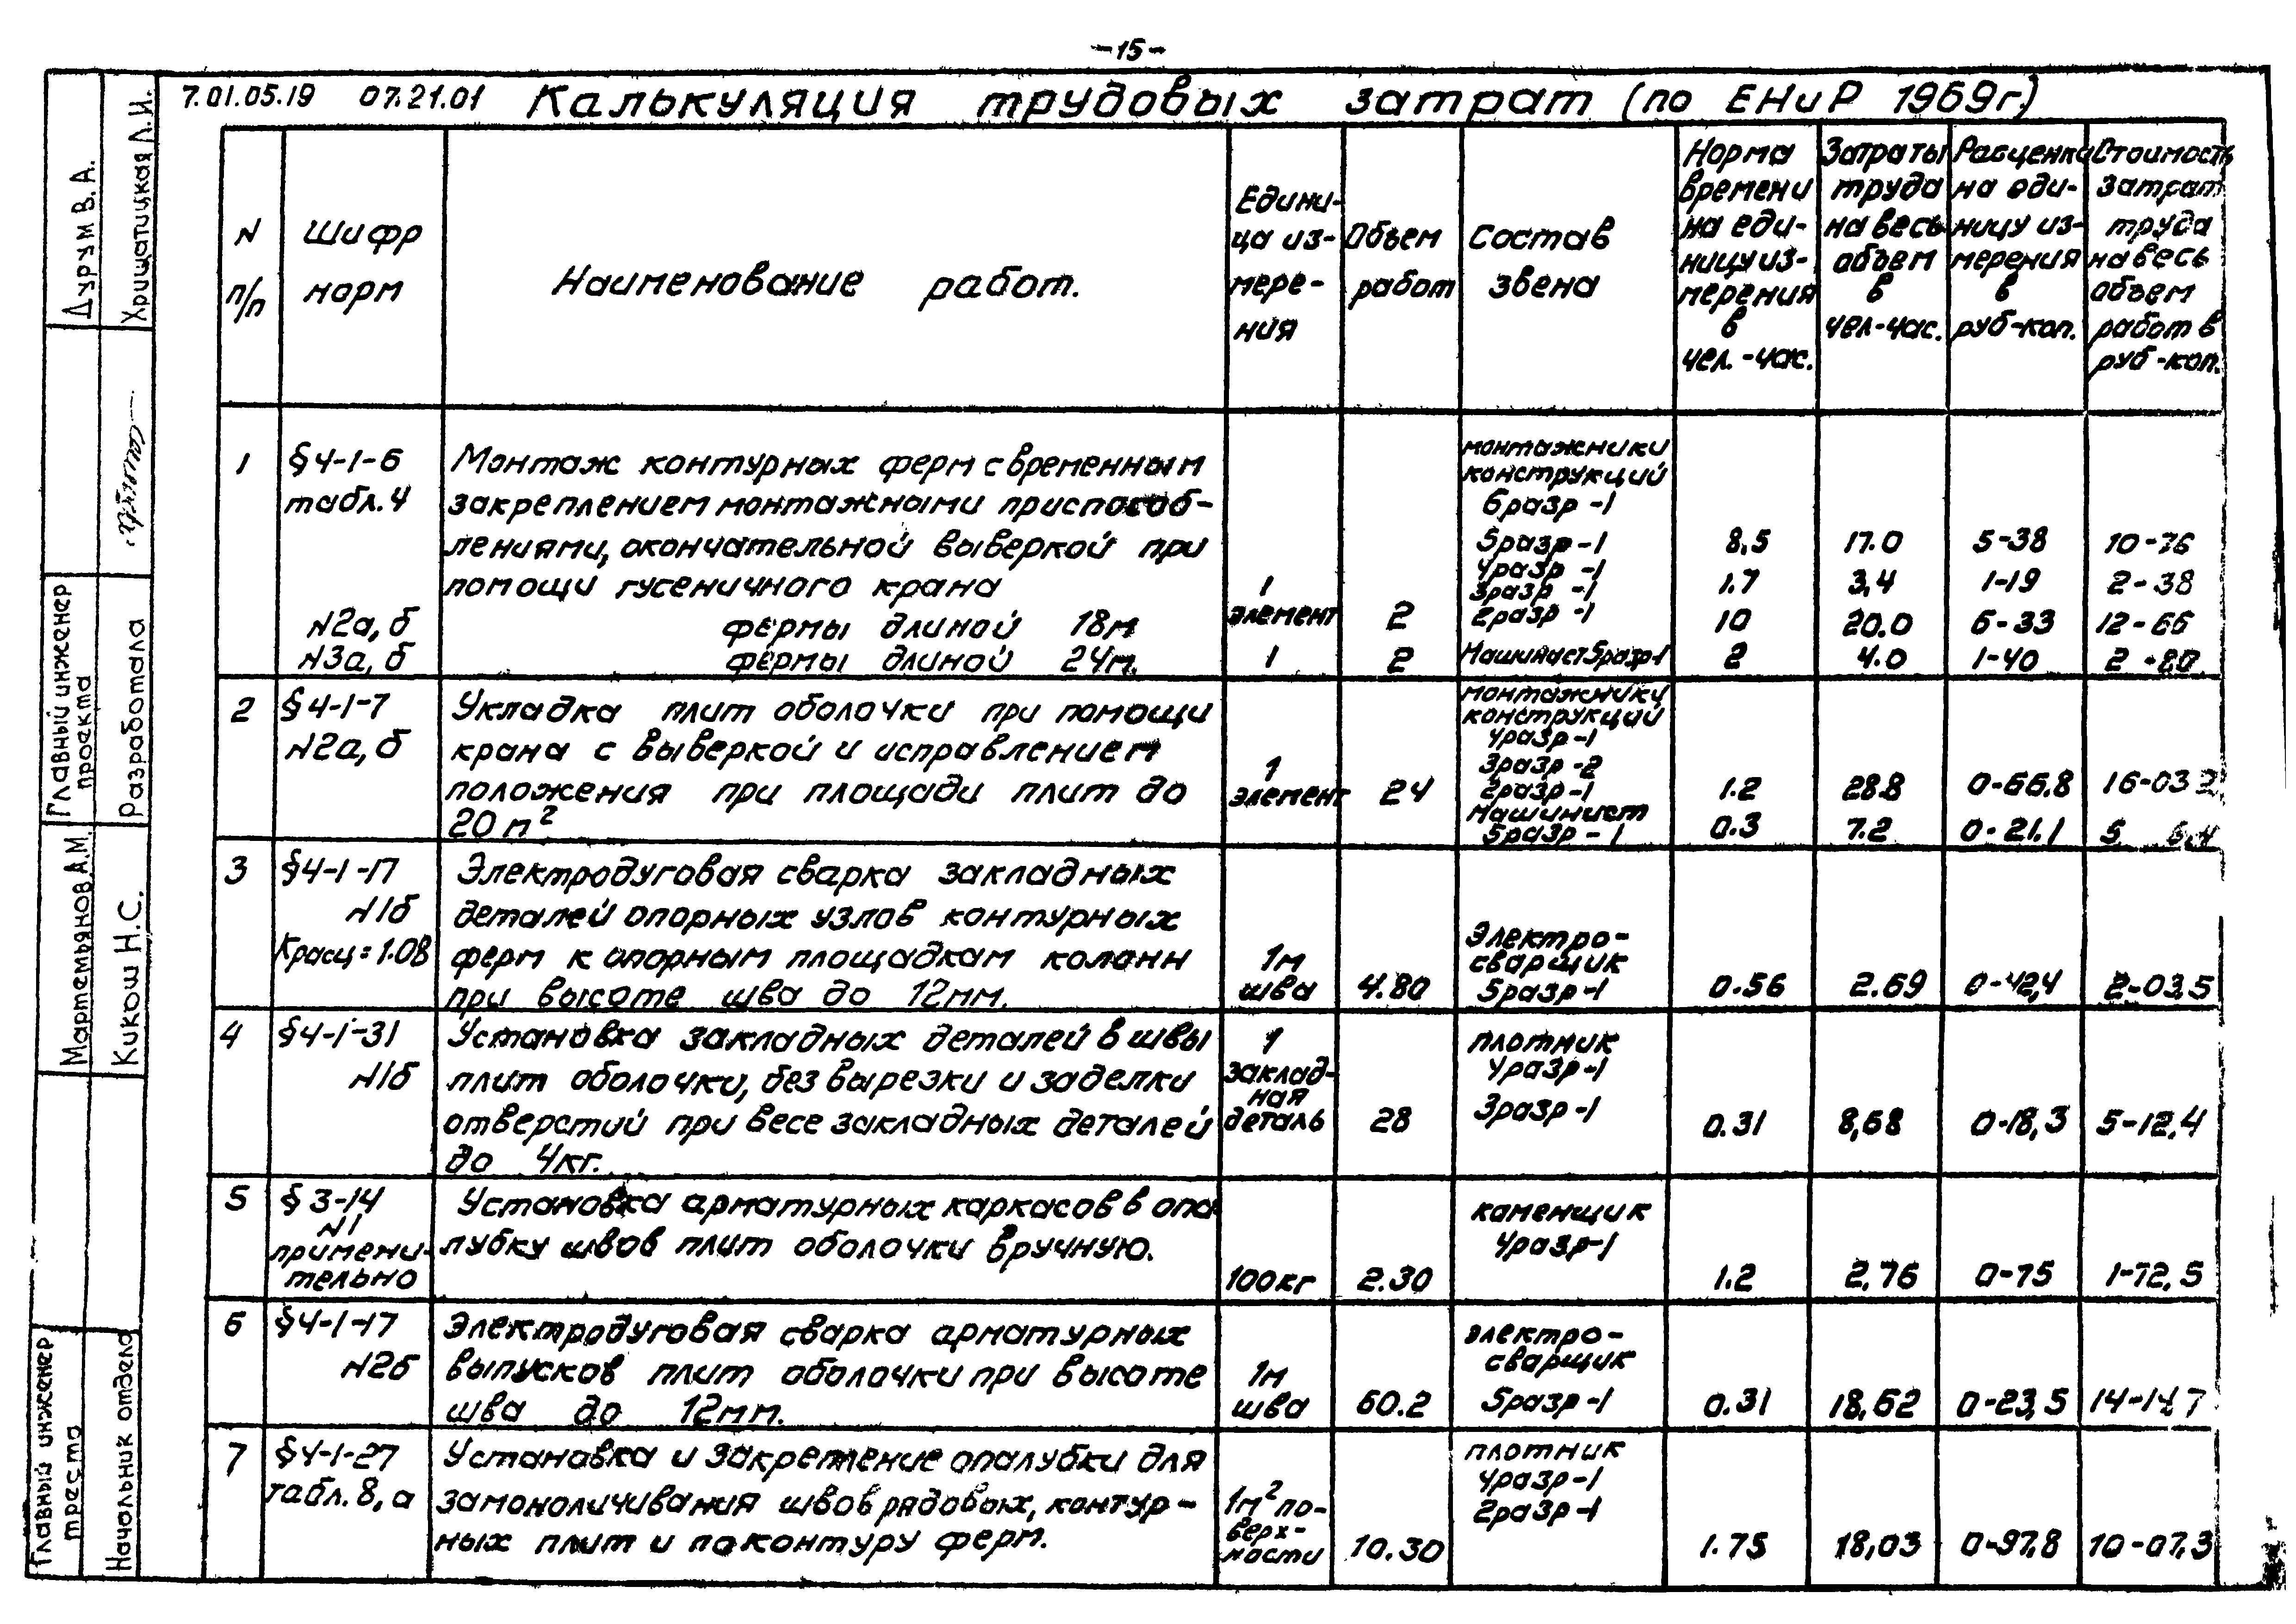 -15-
7.01.05.19 07.21.01 Калькуляция трудовых затрат (по ЕНиР 1969г.)
N п/п
Шифр норм
Наименование работ.
Едини-
ца из-
мере-
ния
Объем
работ
Состав
звена
Норма
времени
на еди-
ницу из-
мерения
в
чел.-час.
Затраты
труда
на весь
объем
в
чел-час.
Расценка
на еди-
ницу из-
мерения
в
руб-коп.
Стоимость
затрат
труда
на весь
объем
работ в
руб-коп.
1
§4-1-6
табл.4
N2а,б
N3а,б
Монтаж контурных ферм с временным
закреплением монтажными приспособ-
лениями, окончательной выверкой при
помощи гусеничного крана
фермы длиной 18м
фермы длиной 24м.
1
элемент
1
2
2
монтажники
конструкций
6разр -1
5разр -1
4разр -1
3разр -1
2разр -1
Машинист 5разр-1
8,5 17.0 5-38 10-76
1.7 3,4 1-19 2-38
10 20.0 6-33 12-66
2 4.0 1-40 2-80
2
§4-1-7
N2а,б
Укладка плит оболочки при помощи
крана с выверкой и исправлением
положения при площади плит до
20м²
1
элемент
24
монтажники
конструкций
4разр-1
3разр-2
2разр-1
Машинист
5разр-1
1.2 28.8 0-66.8 16-03 2
0.3 7.2 0-21.1 5
3
§4-1-17
N1б
Красц=1.08
Электродуговая сварка закладных
деталей опорных узлов контурных
ферм к опорным площадкам колонн
при высоте шва до 12мм.
1м
шва
4.80
Электро-
сварщик
5разр-1
0.56 2.69 0-42,4 2-03,5
4
§4-1-31
N1б
Установка закладных деталей в швы
плит оболочки, без вырезки и заделки
отверстий при весе закладных деталей
до 4кг.
1
заклад-
ная
деталь
28
плотник
4разр-1
3разр-1
0.31 8,68 0-18,3 5-12,4
5
§3-14
N1
примени-
тельно
Установка арматурных каркасов в опа
лубку швов плит оболочки вручную.
100кг
2.30
каменщик
4разр-1
1.2 2,76 0-75 1-72,5
6
§4-1-17
N2б
Электродуговая сварка арматурных
выпусков плит оболочки при высоте
шва до 12мм.
1м
шва
60.2
электро-
сварщик
5разр-1
0.31 18,62 0-23,5 14-14,7
7
§4-1-27
табл.8,а
Установка и закрепление опалубки для
замоноличивания швов рядовых, контур-
ных плит и по контуру ферм.
1м² по-
верх-
ности
10.30
плотник
4разр-1
2разр-1
1.75 18,03 0-97,8 10-07,3
Дурум В.А.
Хрищатицкая Л.И.
Главный инженер
проекта
Разработала
Мартемьянов А.М.
Кикош Н.С.
Главный инженер
треста
Начальник отдела